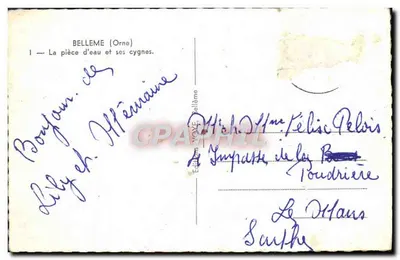 BELLEME (Orne)
1 - La pièce d'eau et ses cygnes.
Bonjour de
Lily et Germaine
Bellême
Mr et Mme Félix Pelois
4 Impasse de la
Poudrière
Le Mans
Sarthe
CPAPHIL